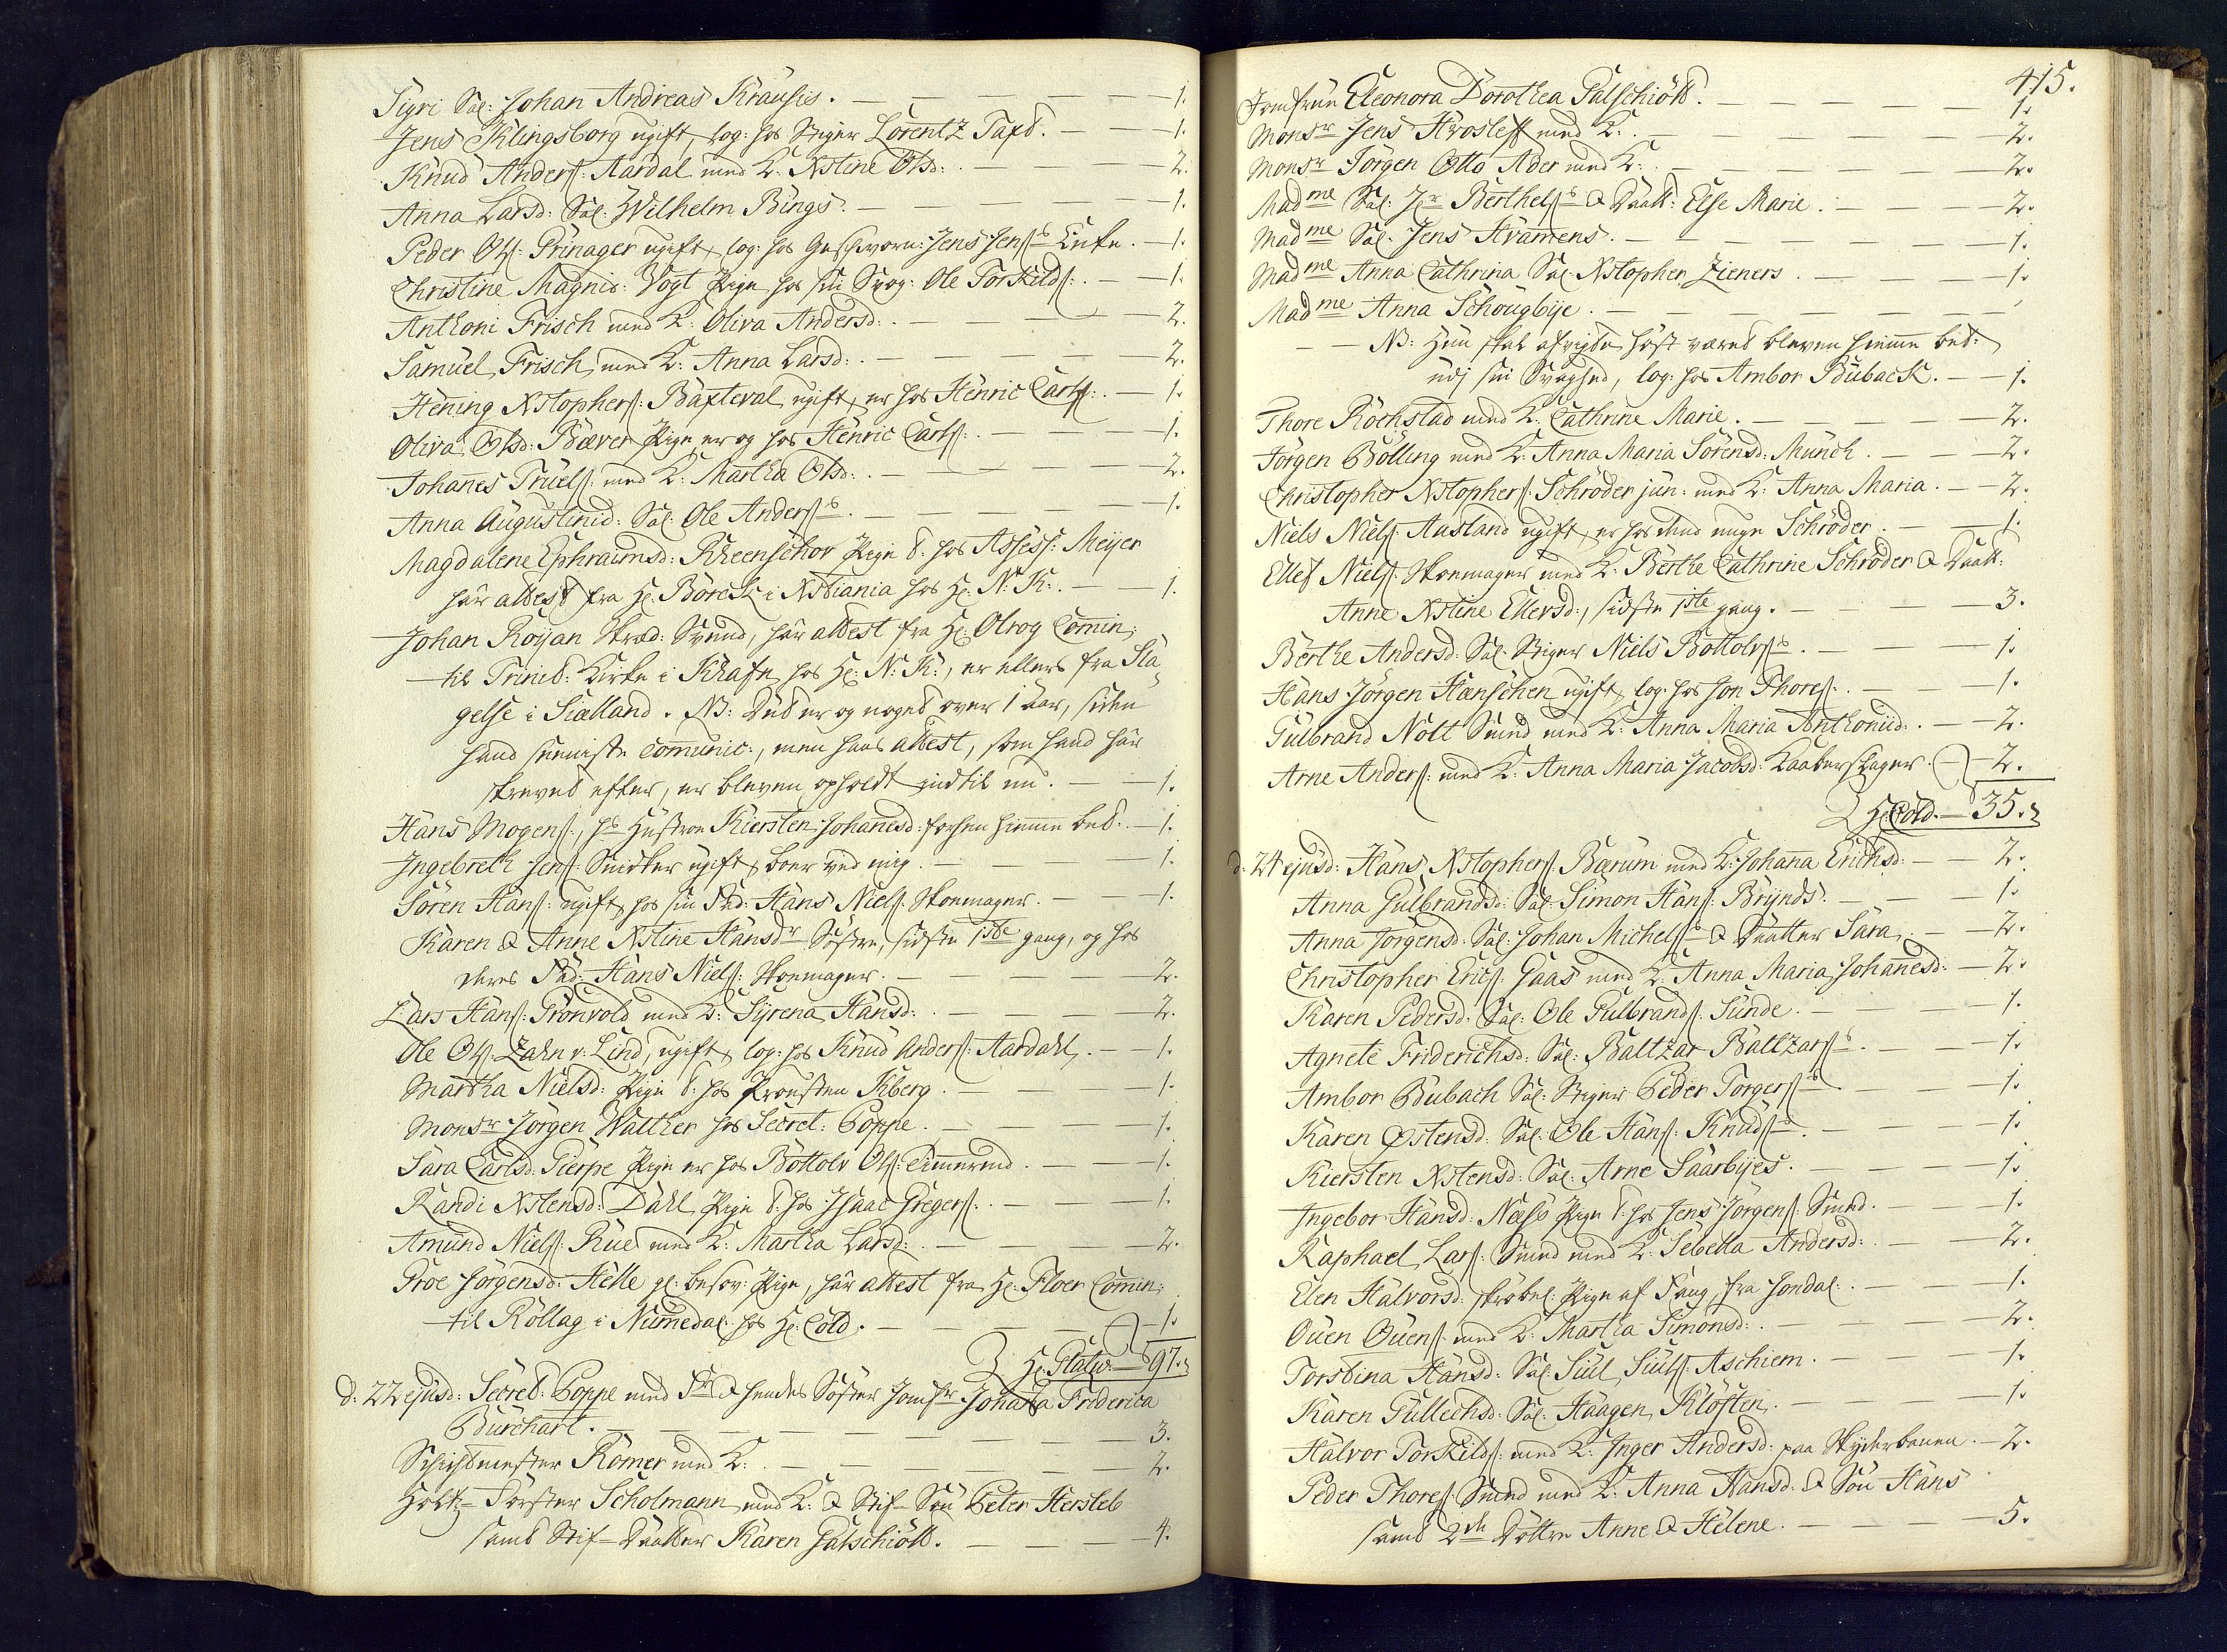 Sigri Sal: Johan Andreas Krausis. — 1.
Jens Klingsborg ugift, log: hos Stiger Lorentz Taxt. — 1.
Knud Anders: Aardal med K: Xstine Olsd: — 2.
Anna Larsd: Sal: Wilhelm Bings. — 1.
Peder Ols: Prinager ugift, log: hos Geschworn: Jens Jens: — 1.
Christine Magnid: Vogt Pige hos sin Svog: Ole Torkilds: — 1.
Anthoni Frisch med K: Oliva Andersd: — 2.
Samuel Frisch med K: Anna Larsd: — 2.
Hening Xstophers: Baxteval ugift, er hos Henric Carls: — 1.
Oliva Olsd: Bæver Pige er og hos Henric Carls: — 1.
Johanes Truels: med K: Martha Olsd: — 2.
Anna Augustinid: Sal: Ole Anders: — 1.
Magdalene Ephraimsd: Rheenschov Pige t: hos Assess: Meijer
har attest fra Hr: Borck i Xstiania hos Hr: N: K: — 1.
Johan Roijan Skræd: Svend, har attest fra Hr: Olrog Comin:
til Trinit: Kirke i Khafn hos Hr: N: K:, er ellers fra Sla
gelse i Siælland. NB: Det er og noget over 1 Aar, siden
hand senniste comunic:, men hans attest, som hand har
skrevet efter, er bleven opholdt indtil nu. — 1.
Hans Mogens:, hs Hustroe Kiersten Johanesd: forhen hiemme bet. — 1.
Ingebreth Jens: Snidker ugift, boer ved mig. — 1.
Sören Hans: ugift, hos sin Fad: Hans Niels: Skoemager. — 1.
Karen & Anne Xstine Hansdr Søstre, sidste 1ste gang, og hos
deres Fad: Hans Niels: Skoemager. — 2.
Lars Hans: Grönvold med K: Syrena Hansd: — 2.
Ole Ols: Zahn v: Lind, ugift, log: hos Knud Anders: Aardahl. — 1.
Martha Nielsd: Pige t: hos Provsten Kberg. — 1.
Monsr Jörgen Walther hos Secret: Poppe. — 1.
Sara Carlsd: Gierpe Pige er hos Bottolv Ols: Tømermd. — 1.
Randi Xstensd: Dahl Pige t: hos Isaac Gregers: — 1.
Amund Niels: Rue med K: Martha Larsd: — 2.
Groe Jörgensd: Helle gl: besov: Pige, har attest fra Hr: Floer Comin:
til Rollag i Numedal hos Hr: Cold. — 1.
Hr: Flatw. — 97.
d. 22 ejusd: Secret: Poppe med Fr & hendes Søster Jomfr Johana Friderica
Burchart. — 3.
Schichtmester Römer med K: — 2.
Holtz-Förster Scholmann med K: & Stif-Søn Peter Hersleb
samt Stif-Daatter Karen Galschiött. — 4.
415.
Jomfrue Eleonora Dorothea Galschiött. — 1.
Monsr Jens Hvosleff med K: — 2.
Monsr Jörgen Otto Ader med K: — 2.
Madme Sal: Jr Berthels: & Daatt: Else Marie. — 2.
Madme Sal: Jens Kramers. — 1.
Madme Anna Cathrina Sal: Xstopher Zieners. — 1.
Madme Anna Schougbije. —
— NB: Hun skal afvigte høst været bleven hieme bet:
udj sin Svaghed, log: hos Ambor Bubach. — 1.
Thore Rochstad med K: Cathrine Marie. — 2.
Jörgen Bölling med K: Anna Maria Sörensd: Munch. — 2.
Christopher Xstophers: Schröder jun: med K: Anna Maria. — 2.
Niels Niels: Aasland ugift, er hos dend unge Schröder. — 1.
Ellef Niels: Skoemager med K: Berthe Cathrine Schröder & Daatt:
Anne Xstine Ellevsd:, sidste 1ste gang. — 3.
Berthe Andersd: Sal: Stiger Niels Bottolvs: — 1.
Hans Jörgen Hænschen ugift, log: hos Jon Thores: — 1.
Gulbrand Nott Smed med K: Anna Maria Anthonid: — 2.
Arne Anders: med K: Anna Maria Jacobsd: Kaaberslager. — 2.
Hr: Cold. — 35.
d. 24 ejusd: Hans Xstophers: Bærum med K: Johana Erichsd: — 2.
Anna Gulbrandsd: Sal: Simon Hans: Brynds. — 1.
Anna Jörgensd: Sal: Johan Michels: & Daatter Sara. — 2.
Christopher Erics: Gaas med K: Anna Maria Johanesd: — 2.
Karen Pedersd: Sal: Ole Gulbrands: Sunde. — 1.
Agnete Friderichsd: Sal: Baltzar Baltzars: — 1.
Ambor Bubach Sal: Stiger Peder Torgers: — 1.
Karen Østensd: Sal: Ole Hans: Knuds: — 1.
Kiersten Xstensd: Sal: Arne Saarbijes. — 1.
Ingebor Hansd: Næss Pige t: hos Jens Jörgens: Smed. — 1.
Raphael Lars: Smed med K: Sebella Andersd: — 2.
Elen Halvorsd: skröbel: Pige af Fang, fra Jondal. — 1.
Ouen Ouens: med K: Martha Simonsd: — 2.
Torbina Hansd: Sal: Siul Siuls: Aschiem. — 1.
Karen Gullechsd: Sal: Haagen Kloften. — 1.
Halvor Torkilds: med K: Inger Andersd: paa Skyderbanen. — 2.
Peder Thores: Smed med K: Anna Hansd: & Søn Hans
samt 2de Døttre Anne & Helene. — 5.